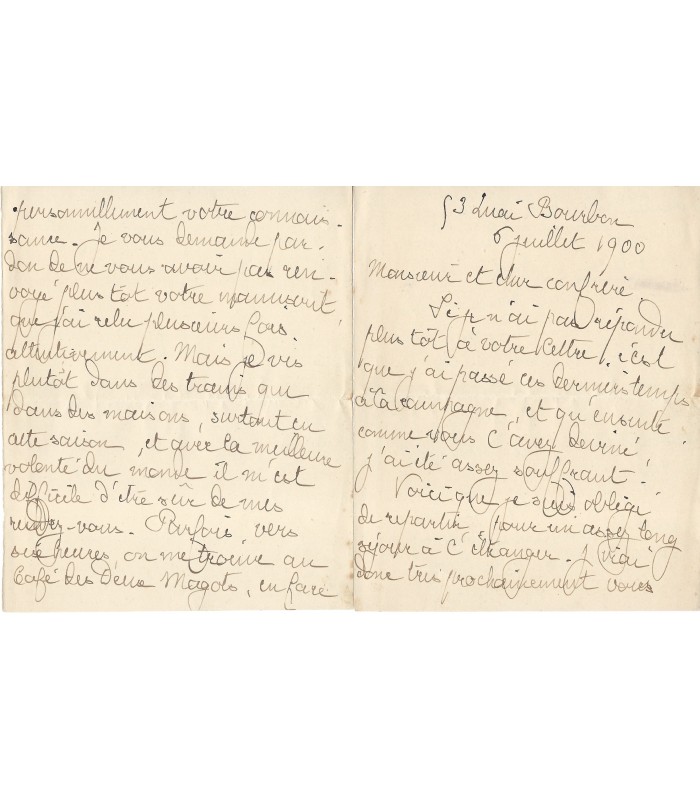 53 Quai Bourbon
6 juillet 1900
Monsieur et cher confrère,
Si je n'ai pas répondu
plus tôt à votre lettre, c'est
que j'ai passé ces derniers temps
à la campagne, et qu'ensuite,
comme vous l'avez deviné,
j'ai été assez souffrant.
Voici que je suis obligé
de repartir pour un assez long
séjour à l'étranger. J'irai
donc très prochainement vous
personnellement votre connais-
sance. Je vous demande par-
don de ne vous avoir pas ren-
voyé plus tôt votre manuscrit
que j'ai relu plusieurs fois
attentivement. Mais je vis
plutôt dans des trains que
dans des maisons, surtout en
cette saison, et avec la meilleure
volonté du monde il m'est
difficile d'être sûr de mes
rendez-vous. Parfois, vers
six heures, on me trouve au
Café des Deux Magots, en face